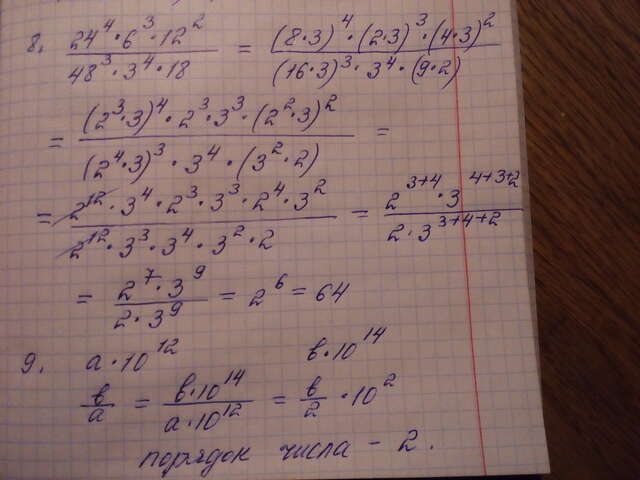 8. 24⁴·6³·12² / 48³·3⁴·18 = (8·3)⁴·(2·3)³·(4·3)² / (16·3)³·3⁴·(9·2)
= (2³·3)⁴·2³·3³·(2²·3)² / (2⁴·3)³·3⁴·(3²·2) =
= 2¹²·3⁴·2³·3³·2⁴·3² / 2¹²·3³·3⁴·3²·2 = 2³⁺⁴·3⁴⁺³⁺² / 2·3³⁺⁴⁺²
= 2⁷·3⁹ / 2·3⁹ = 2⁶ = 64
9. a·10¹² в·10¹⁴
в/a = в·10¹⁴ / a·10¹² = в/2·10²
порядок числа - 2.